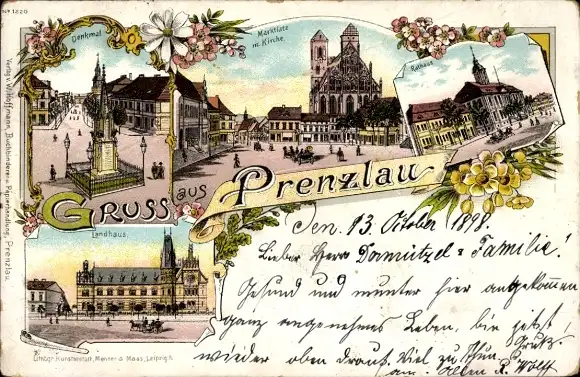 No 1220
Denkmal
Marktplatz
m. Kirche.
Rathaus
Gruss aus
Prenzlau
Landhaus.
Verlag v. W. Hoffmann, Buchbinderei u. Papierhandlung, Prenzlau.
Den. 13. October 1898.
Lieber Herr Dormützel & Familie!
Gesund und munter hier angekommen
ganz angenehmes Leben, bin jetzt
wieder oben drauf. Viel zu thun. Gruß
an Allen R. Wolff
Lithogr. Kunstanstalt, Menner & Maas, Leipzig